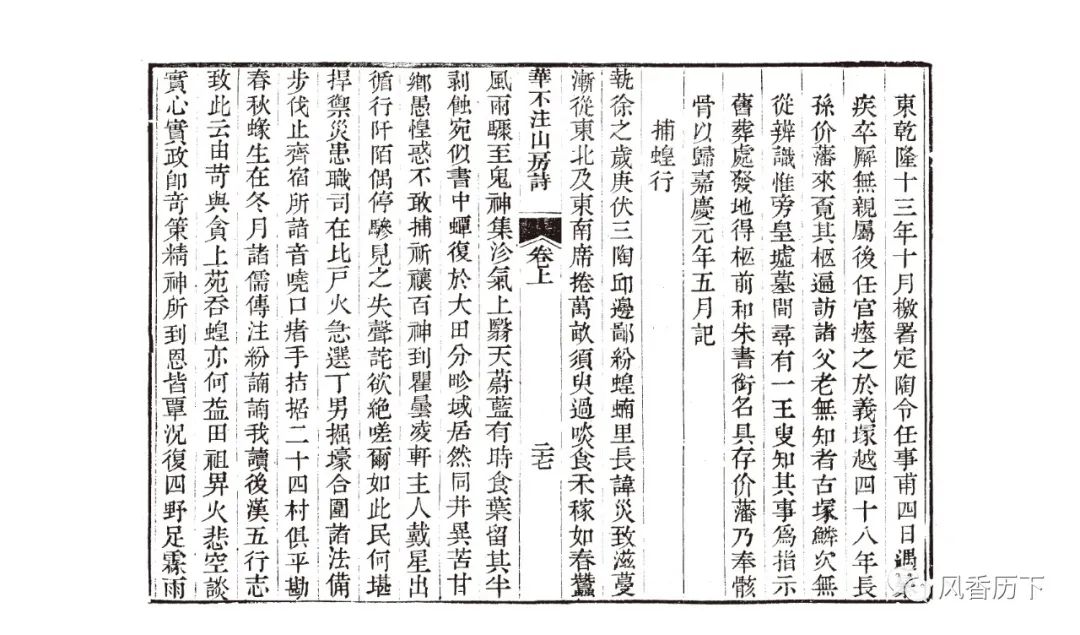 東乾隆十三年十月檄署定陶令任事甫四日遇
疾卒廨無親屬後任官瘞之於義塚越四十八年長
孫价藩來覓其柩遍訪諸父老無知者古塚鱗次無
從辨識惟旁皇墟墓間尋有一王叟知其事爲指示
舊葬處發地得柩前和朱書銜名具存价藩乃奉骸
骨以歸嘉慶元年五月記
捕蝗行
執徐之歲庚伏三陶邱邊鄙紛蝗蝻里長諱災致滋蔓
漸從東北及東南席捲萬畝須臾過啖食禾稼如春蠶
華不注山房詩 卷上 二七
風雨驟至鬼神集沴氣上翳天蔚藍有時食葉留其半
剥蝕宛似書中蟫復於大田分畛域居然同井異苦甘
鄉愚惶惑不敢捕祈禳百神到瞿曇凌軒主人戴星出
循行阡陌偶停驂見之失聲詫欲絕嗟爾如此民何堪
捍禦災患職司在比戸火急選丁男掘壕合圍諸法備
步伐止齊宿所諳音嘵口瘏手拮据二十四村俱平勘
春秋蝝生在冬月諸儒傳注紛諵諵我讀後漢五行志
致此云由苛與貪上苑吞蝗亦何益田祖畀火悲空談
實心實政卽奇策精神所到恩皆覃況復四野足霖雨
风香历下